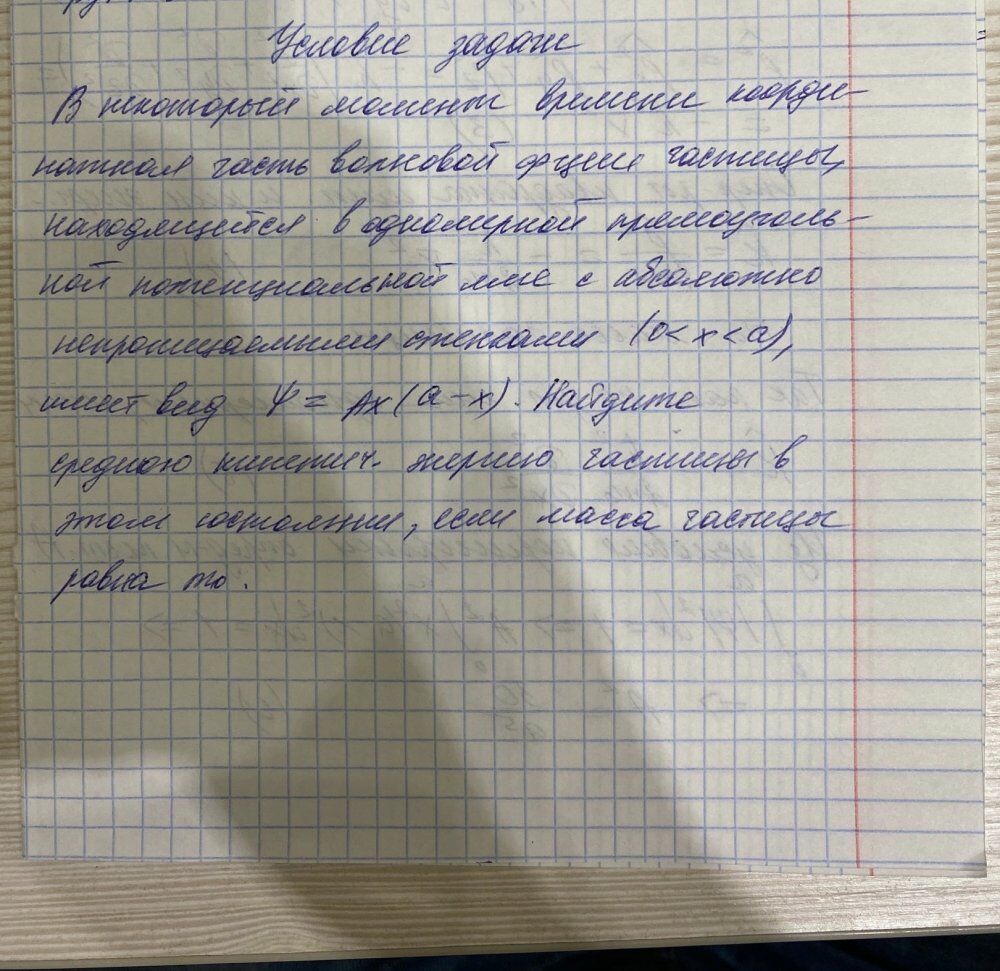 Условие задачи
В некоторый момент времени коорди-
натная часть волновой фции частицы,
находящейся в одномерной прямоуголь-
ной потенциальной яме с абсолютно
непроницаемыми стенками (0 < x < a),
имеет вид Ψ = Ax(a - x). Найдите
среднюю кинетич. энергию частицы в
этом состоянии, если масса частицы
равна m₀.